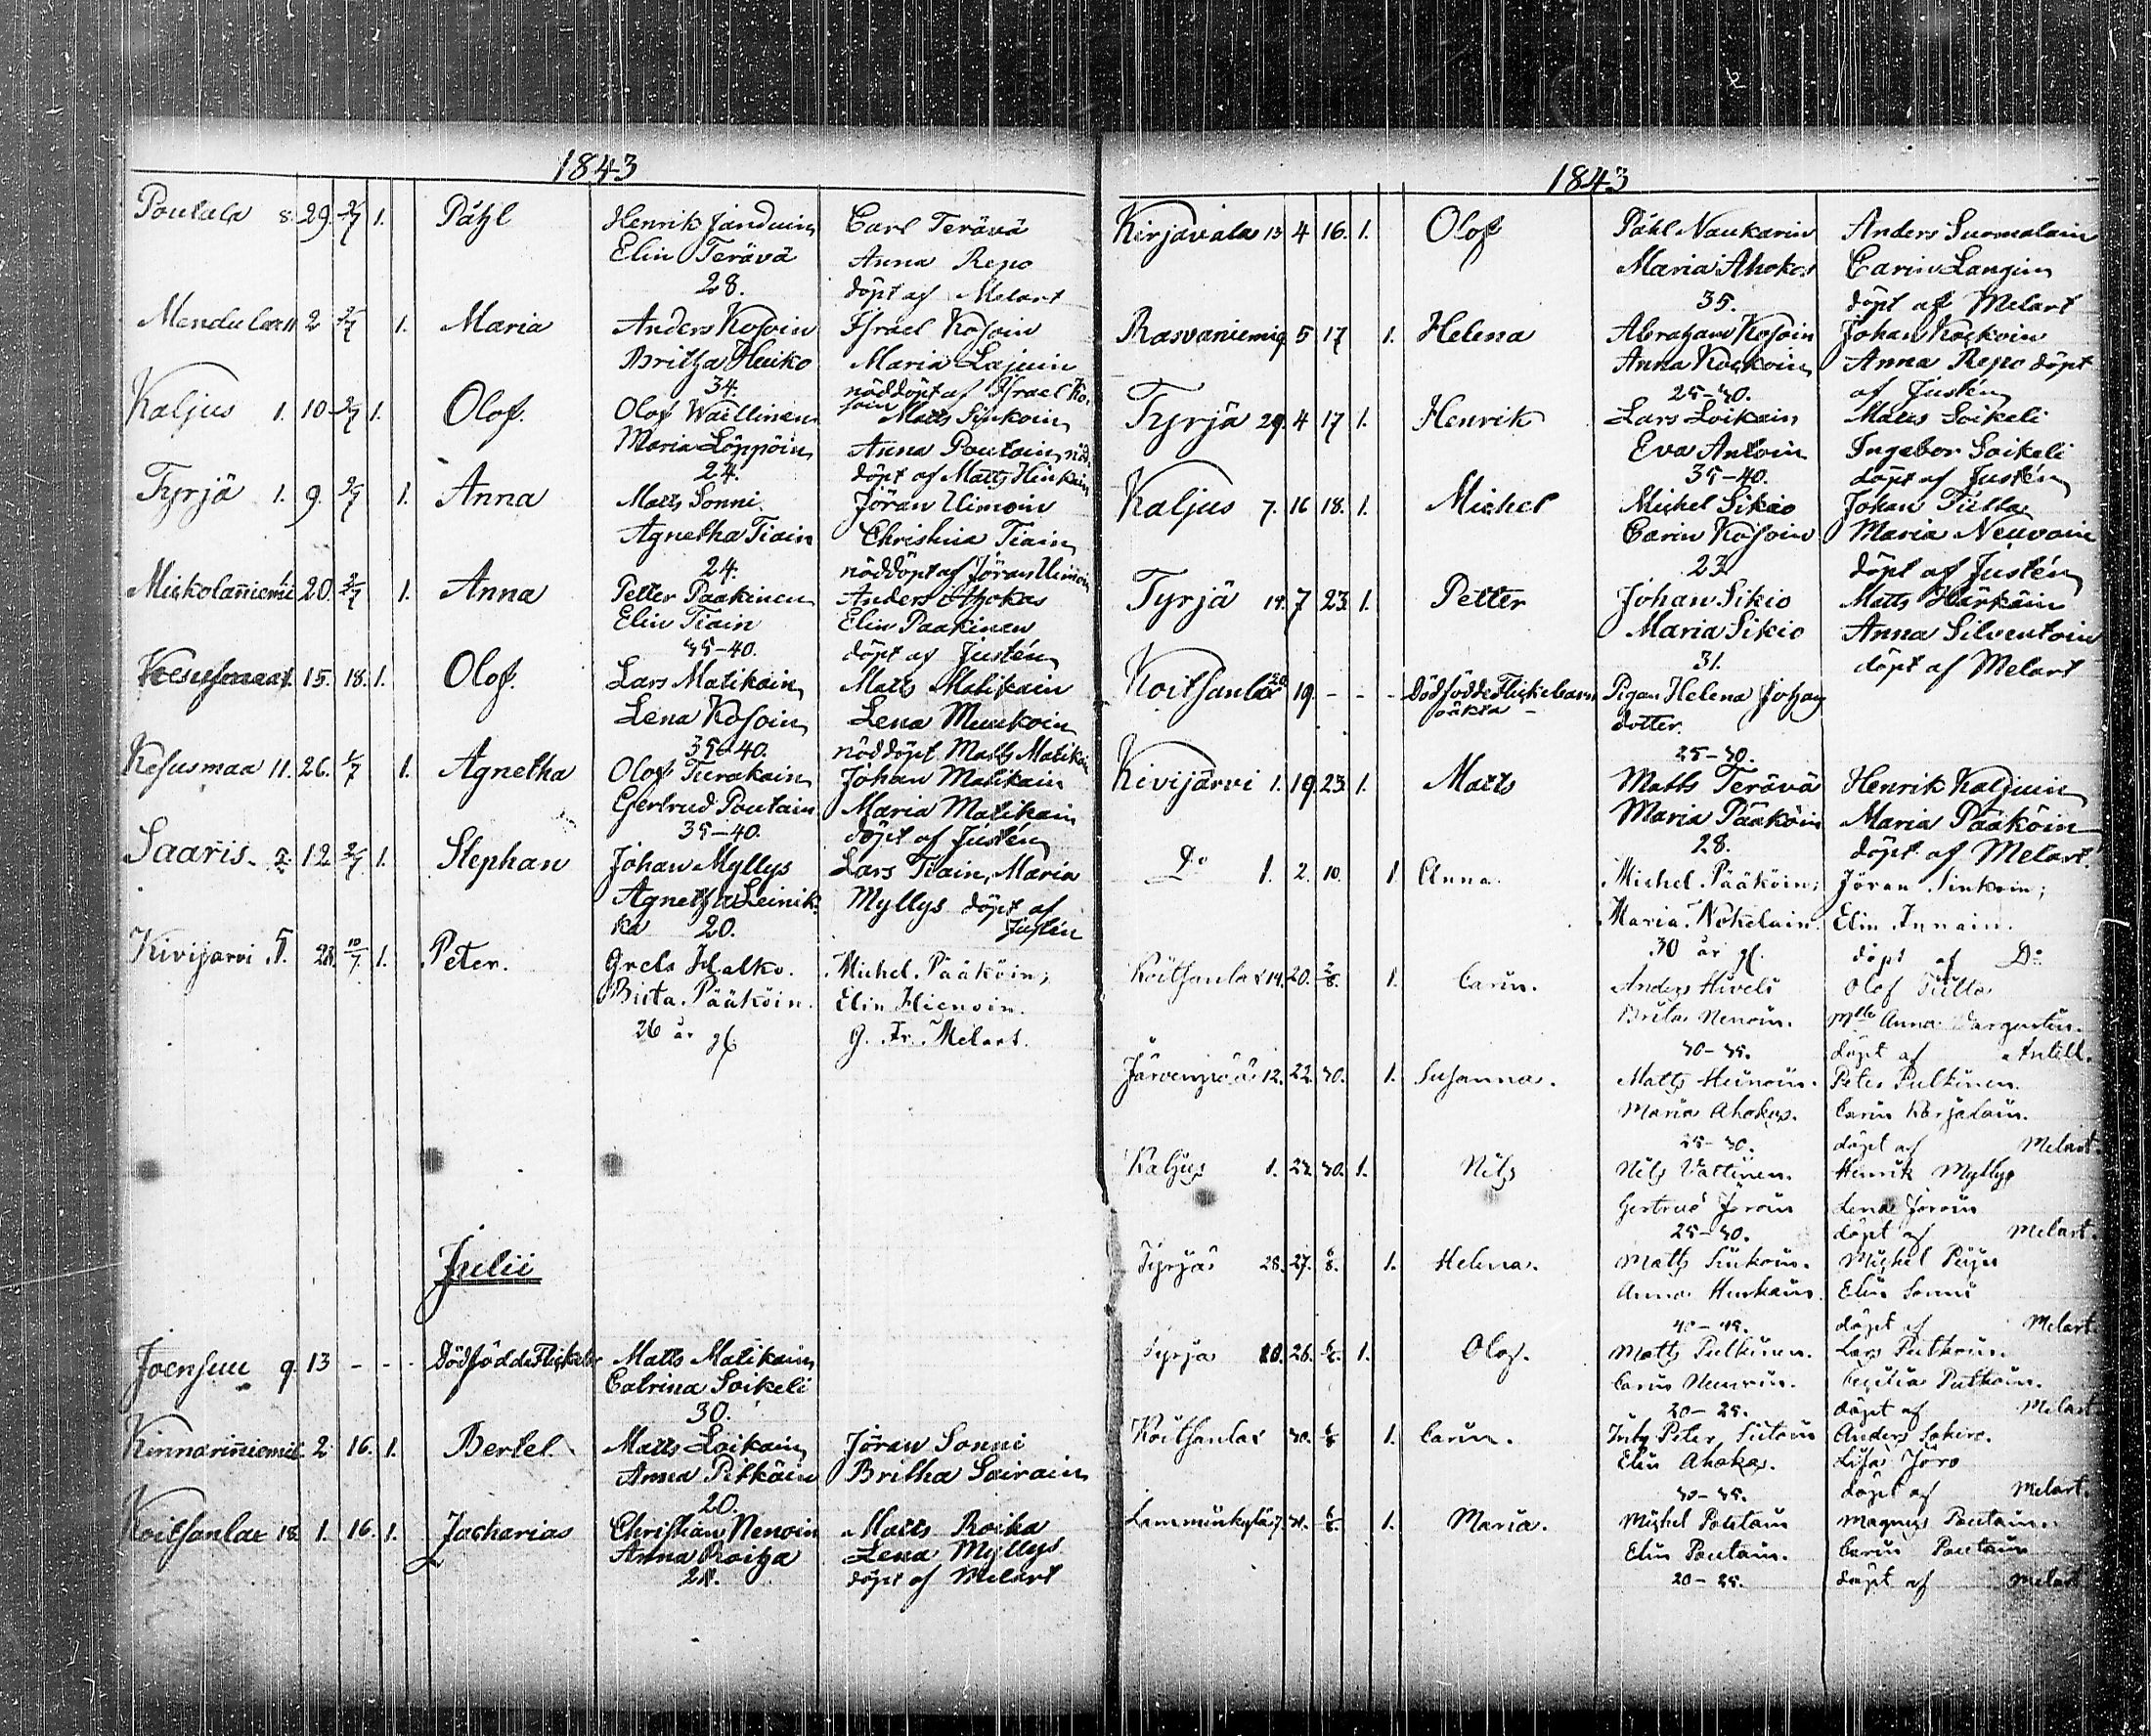 1843
Poutala 8. 29. 2/7 1. Påhl Henrik Janduin Carl Terävä
Elin Terävä Anna Repo
28. döpt af Melart
Mendula 11 2 2/7 1. Maria Anders Kosoin Israel Kosoin
Britha Huiko Maria Lajuin
34. nöddöpt af Israel Ko-
Kaljus 1. 10 2/7 1. Olof. Olof Waellinen soin Matts Sinkoin
Maria Löppöin Anna Poutain nöd-
24. döpt af Matts Hinkain
Tyrjä 1. 9. 2/7 1. Anna Matts Sonni. Jöran Uimoin
Agnetha Tiain Christina Tiain
24. nöddöpt af Jöran Uimoin
Mickolanniemi 1 20. 2/7 1. Anna Petter Paakinen Anders Ahokas
Elin Tiain Elin Paakinen
35-40. döpt af Justén
15. 18. 1. Olof. Lars Matikain Matts Matikain
Lena Kosoin Lena Munkoin
35-40. nöddöpt Matts Matikain
Kesusmaa 11. 26. 1/7 1. Agnetha Olof Turakain Johan Matikain
Gertrud Poutain Maria Matikain
35-40. döpt af Justén
Saaris. 2. 12 2/7 1. Stephan Johan Myllys Lars Tiain, Maria
Agnetha Leinik- Myllys döpt af
ka 20. Justén
Kivijärvi 5. 28. 10/7. 1. Peter. Grels Halko. Michel. Pääköin;
Birta. Pääköin. Elin Hienoin.
26 år gl. G. Fr. Melart.
Julii
Joensuu 9. 13 - - - Dödfödde Flickeb Matts Matikain
Catrina Soikeli
30.
Kinnarinniemi 2 16. 1. Bertel Matts Loikain Jöran Sonni
Anna Pitkäin Britha Sairain
20.
Koitsanlax 18. 1. 16. 1. Zacharias Christian Nenoin Matts Roiha
Anna Roiha Lena Myllys
28. döpt af Melart
1843
Kirjavala 13 4 16. 1. Olof Påhl Naukarin Anders Suomalain
Maria Ahokas Carin Langin
35. döpt af Melart
Rasvaniemi 9 5 17 1. Helena Abraham Kosoin Johan Kockoin
Anna Kockoin Anna Repo döpt
25-30. af Justén
Tyrjä 29. 4 17 1. Henrik Lars Loikain Matts Soikeli
Eva Antoin Ingebor Soikeli
35-40. döpt af Justén
Kaljus 7. 16 18. 1. Michel Michel Sikio Johan Tulla
Carin Kosoin Maria Neuvoin
23 döpt af Justén
Tyrjä 14. 7 23. 1. Petter Johan Sikio Matts Härkäin
Maria Sikio Anna Silventoin
31. döpt af Melart
Koitsanlax 20 19. - - - Dödfödde Flickebarn Pigan Helena Johans
oäkta - dotter.
25-30.
Kivijärvi 1. 19. 23. 1. Matts Matts Terävä Henrik Kaljuin
Maria Pääköin Maria Pääköin
28. döpt af Melart.
Do 1. 2. 10. 1 Anna. Michel. Pääköin; Jöran Sinkoin;
Maria. Nokelain. Elin Innain.
30 år gl. döpt af Do
Koitsanlax 14. 20. 2/8. 1. Carin. Anders Hiveli Olof Tulla
Brita Nenoin. Mlle Anna
30-35. döpt af
Järvenpää 12. 22. 30. 1. Susanna. Matts Heinoin. Peter Pulkinen.
Maria Ahokas. Carin Karjalain.
25-30. döpt af Melart.
Kaljus 1. 24. 30. 1. Nils Nils Vattinen. Henrik Myllys
Gertrud Jöroin Lena Jöroin
25-30. döpt af Melart.
Tyrjä 28. 27. 6/8. 1. Helena. Matts Sinkoin. Michel Päiju
Anna Hurkain. Elin Sonni
40-45. döpt af Melart.
Tyrjä 20. 26. 6/8. 1. Olof. Matts Pulkinen. Lars Putkoin.
Carin Neuvoin. Cecilia Putkoin.
20-25. döpt af Melart.
Koitsanlax 30. 6/8 1. Carin. Inhy Peter Sutoin Anders
Elin Ahokas. Lisa Jöro
30-35. döpt af Melart.
Lamminkylä 7. 31. 6/8. 1. Maria. Michel Poutain Magnus Poutain.
Elin Poutain. Carin Poutain
20-25. döpt af Melart